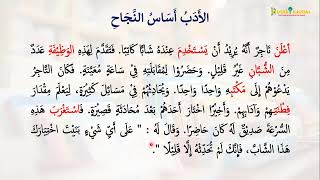 الأَدَبُ أَسَاسُ النَّجَاحِ
أَعْلَنَ تَاجِرٌ أَنَّهُ يُرِيدُ أَنْ يَسْتَخْدِمَ عِنْدَهُ شَابًّا كَاتِبًا. فَتَقَدَّمَ لِهَذِهِ الوَظِيْفَةِ عَدَدٌ
مِنَ الشُّبَّانِ غَيْرُ قَلِيْلٍ. وَحَضَرُوْا لِمُقَابَلَتِهِ فِي سَاعَةٍ مُعَيَّنَةٍ. فَكَانَ التَّاجِرُ
يَدْعُوْهُمْ إِلَى مَكْتَبِهِ وَاحِدًا وَاحِدًا. وَيُحَادِثُهُمْ فِي مَسَائِلَ كَثِيْرَةٍ، لِيَعْلَمَ مِقْدَارَ
فِطْنَتِهِمْ وَآدَابِهِمْ. وَأَخِيْرًا اخْتَارَ أَحَدَهُمْ بَعْدَ مُحَادَثَةٍ قَصِيْرَةٍ. فَاسْتَغْرَبَ هَذِهِ
السُّرْعَةَ صَدِيْقٌ لَهُ كَانَ حَاضِرًا. وَقَالَ لَهُ : " عَلَى أَيِّ شَيْءٍ بَنَيْتَ اخْتِيَارَكَ
هَذَا الشَّابَّ، فَإِنَّكَ لَمْ تُحَدِّثْهُ إِلَّا قَلِيْلًا "